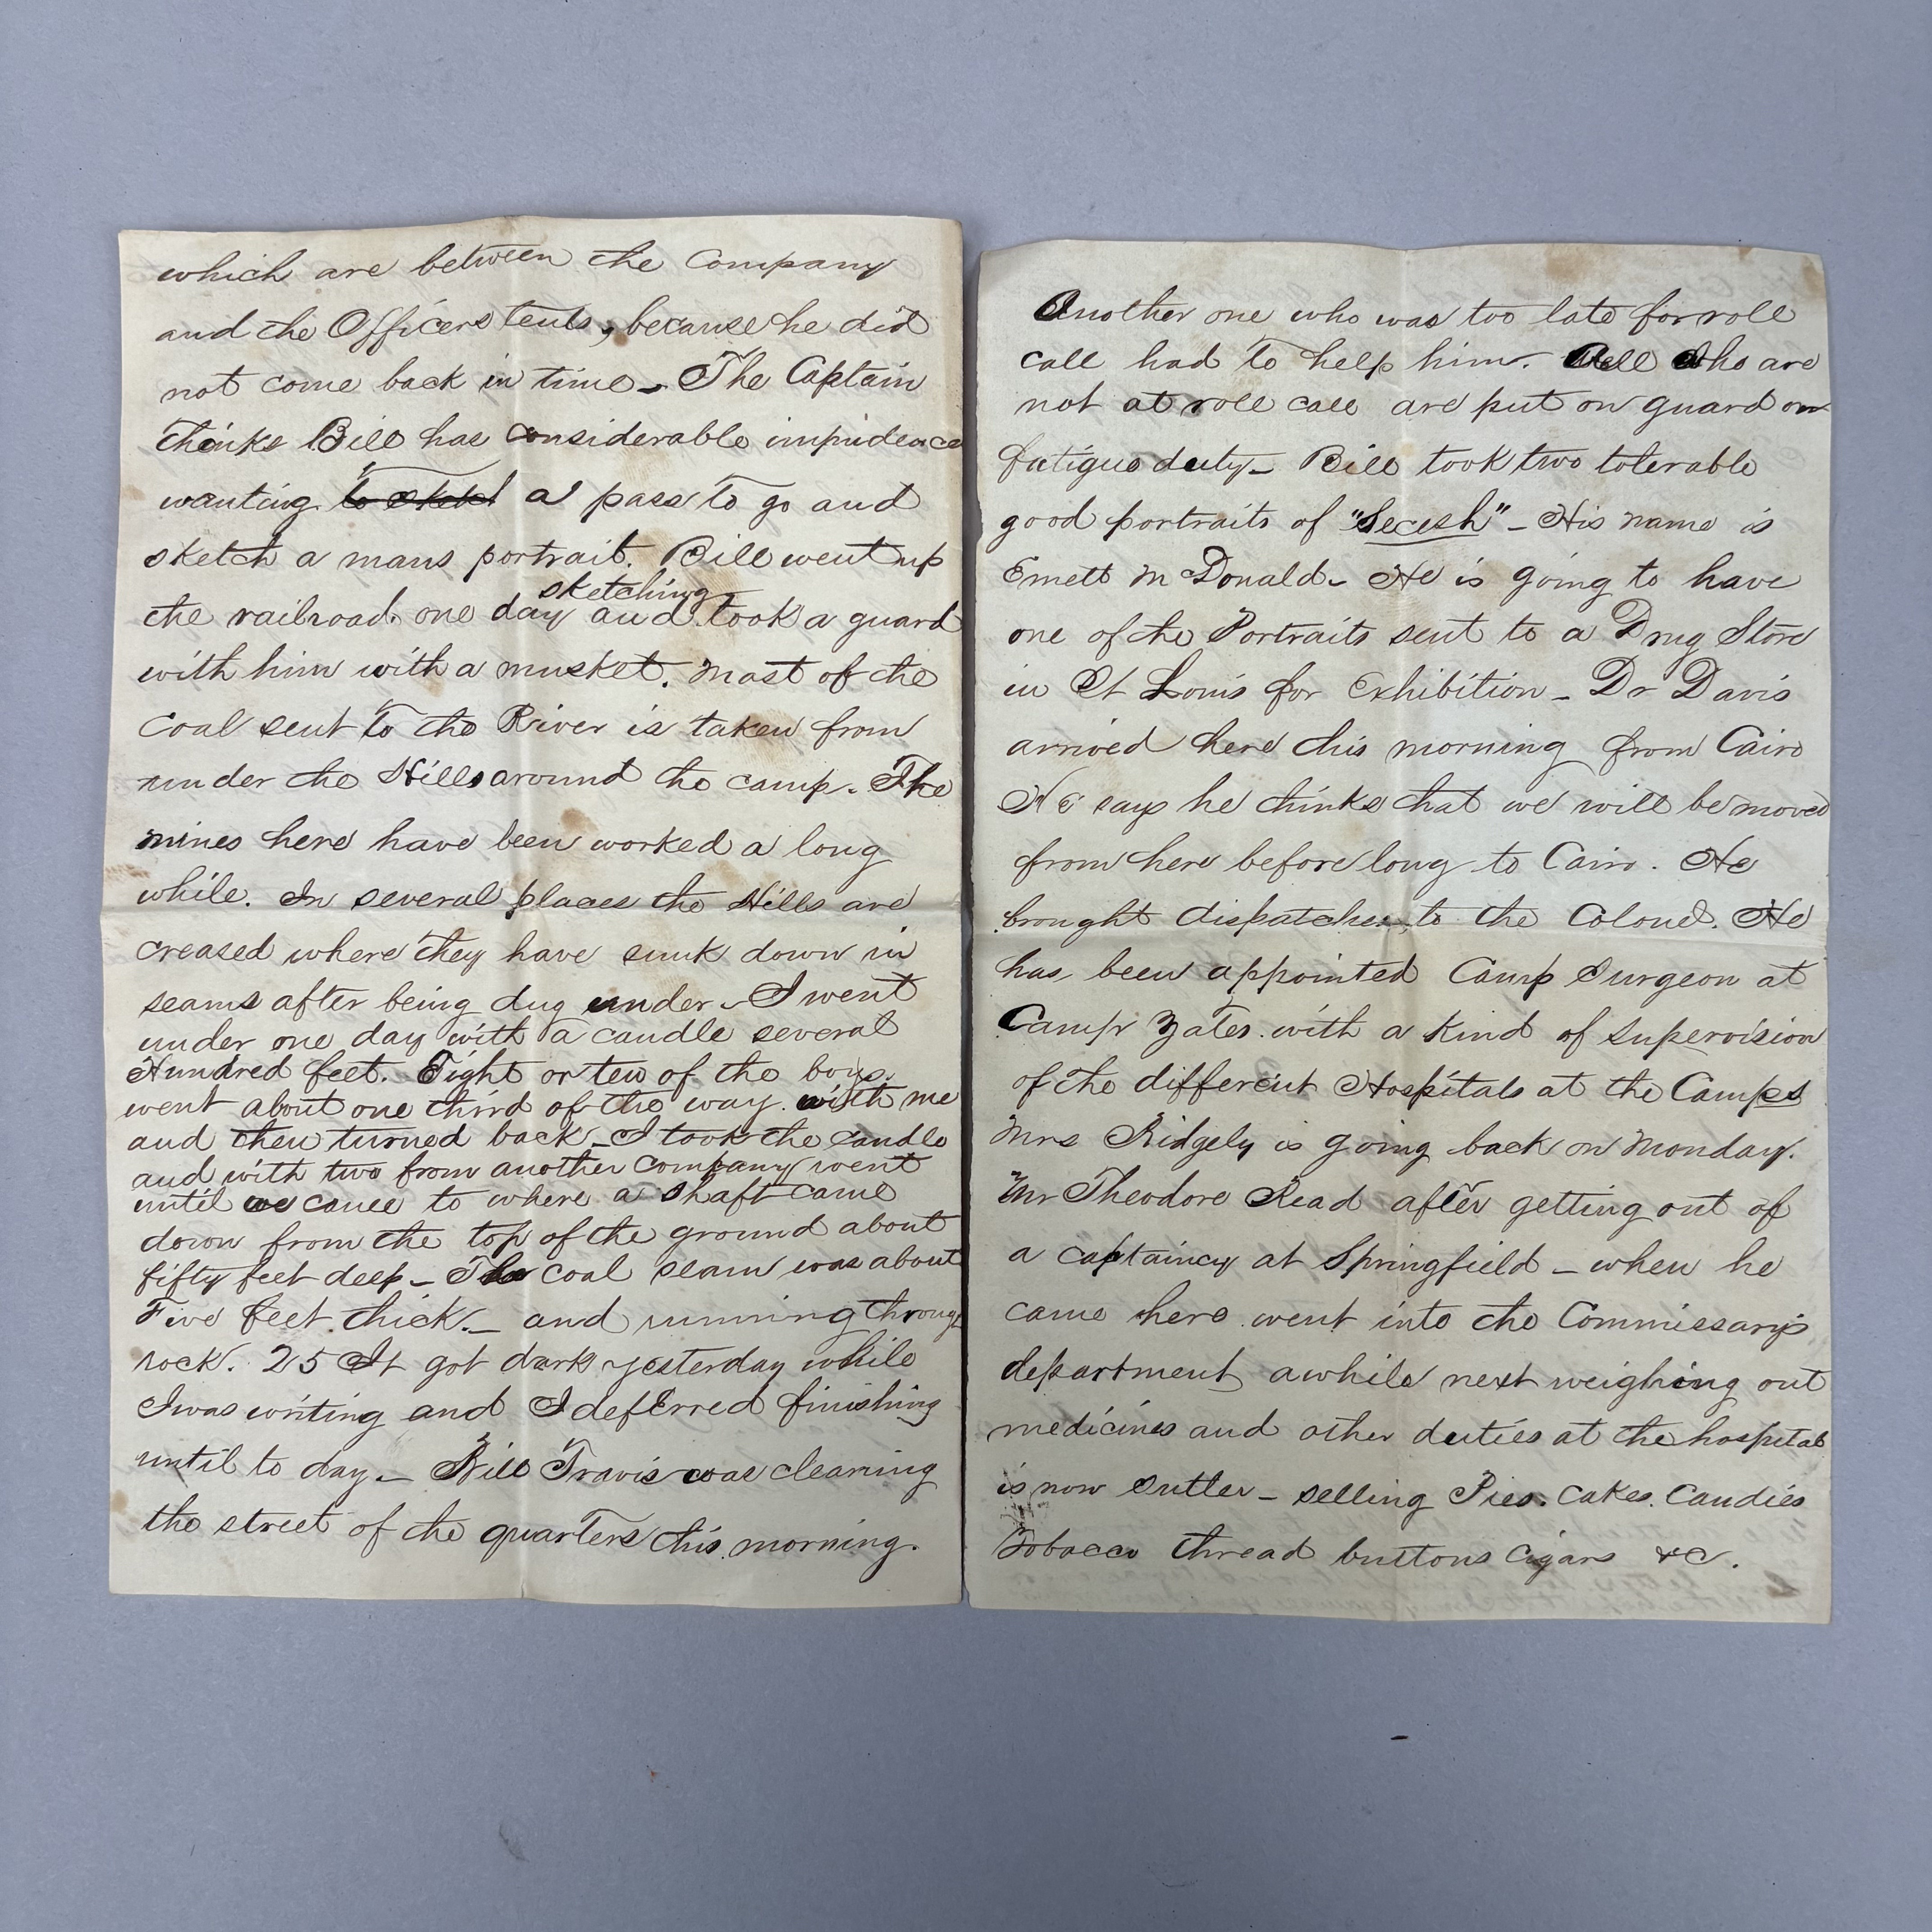 which are between the Company
and the Officers tents, because he did
not come back in time - The Captain
thinks Bill has considerable impudence
wanting to sketch a pass to go and
sketch a mans portrait. Bill went up
sketching
the railroad one day and took a guard
with him with a musket. Most of the
Coal sent to the River is taken from
under the Hills around the camp. The
mines here have been worked a long
while. In several places the Hills are
creased where they have sunk down in
seams after being dug under - I went
under one day with a candle several
Hundred feet. Eight or ten of the boys
went about one third of the way with me
and then turned back - I took the candle
and with two from another Company went
until we came to where a shaft came
down from the top of the ground about
fifty feet deep - The coal seam was about
Five feet thick. - and running through
rock. 25 It got dark yesterday while
I was writing and I deferred finishing
until to day. - Bill Travis was cleaning
the street of the quarters this morning.
Another one who was too late for roll
call had to help him. All who are
not at roll call are put on guard or
fatigue duty - Bill took two tolerable
good portraits of "Secesh" - His name is
Emett McDonald - He is going to have
one of the Portraits sent to a Drug Store
in St Louis for Exhibition - Dr Davis
arrived here this morning from Cairo
He says he thinks that we will be moved
from here before long to Cairo. He
brought dispatches to the Colonel. He
has been appointed Camp Surgeon at
Camp Yates with a kind of supervision
of the different Hospitals at the Camps
Mrs Ridgely is going back on Monday.
Mr Theodore Read after getting out of
a captaincy at Springfield - when he
came here went into the Commissary's
department awhile next weighing out
medicines and other duties at the hospital
is now Sutler - selling Pies. Cakes. Candies
Tobacco thread buttons Cigars &c.